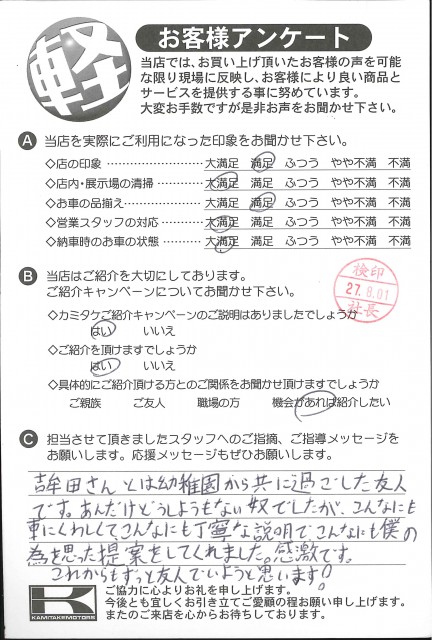 軽
お客様アンケート
当店では、お買い上げ頂いたお客様の声を可能
な限り現場に反映し、お客様により良い商品と
サービスを提供する事に努めています。
大変お手数ですが是非お声をお聞かせ下さい。
A 当店を実際にご利用になった印象をお聞かせ下さい。
◇店の印象 ………………… 大満足 満足 ふつう やや不満 不満
◇店内・展示場の清掃 ……… 大満足 満足 ふつう やや不満 不満
◇お車の品揃え……………… 大満足 満足 ふつう やや不満 不満
◇営業スタッフの対応 ……… 大満足 満足 ふつう やや不満 不満
◇納車時のお車の状態 ……… 大満足 満足 ふつう やや不満 不満
B 当店はご紹介を大切にしております。
ご紹介キャンペーンについてお聞かせ下さい。
検印
27.8.01
社長
◇カミタケご紹介キャンペーンのご説明はありましたでしょうか
はい いいえ
◇ご紹介を頂けますでしょうか
はい いいえ
◇具体的にご紹介頂ける方とのご関係をお聞かせ頂けますでしょうか
ご親族 ご友人 職場の方 機会があれば紹介したい
C 担当させて頂きましたスタッフへのご指摘、ご指導メッセージを
お願いします。応援メッセージもぜひお願いします。
さんとは幼稚園から共に過ごした友人
です。あんだけどうしようもない奴でしたが、こんなにも
車にくわしくてこんなにも丁寧な説明で、こんなにも僕の
為を思った提案をしてくれました。感激です。
これからもずっと友人でいようと思います!
K
KAMITAKEMOTORS
ご協力に心よりお礼を申し上げます。
今後とも宜しくお引き立てご愛顧の程お願い申し上げます。
またのご来店を心からお待ちしております。